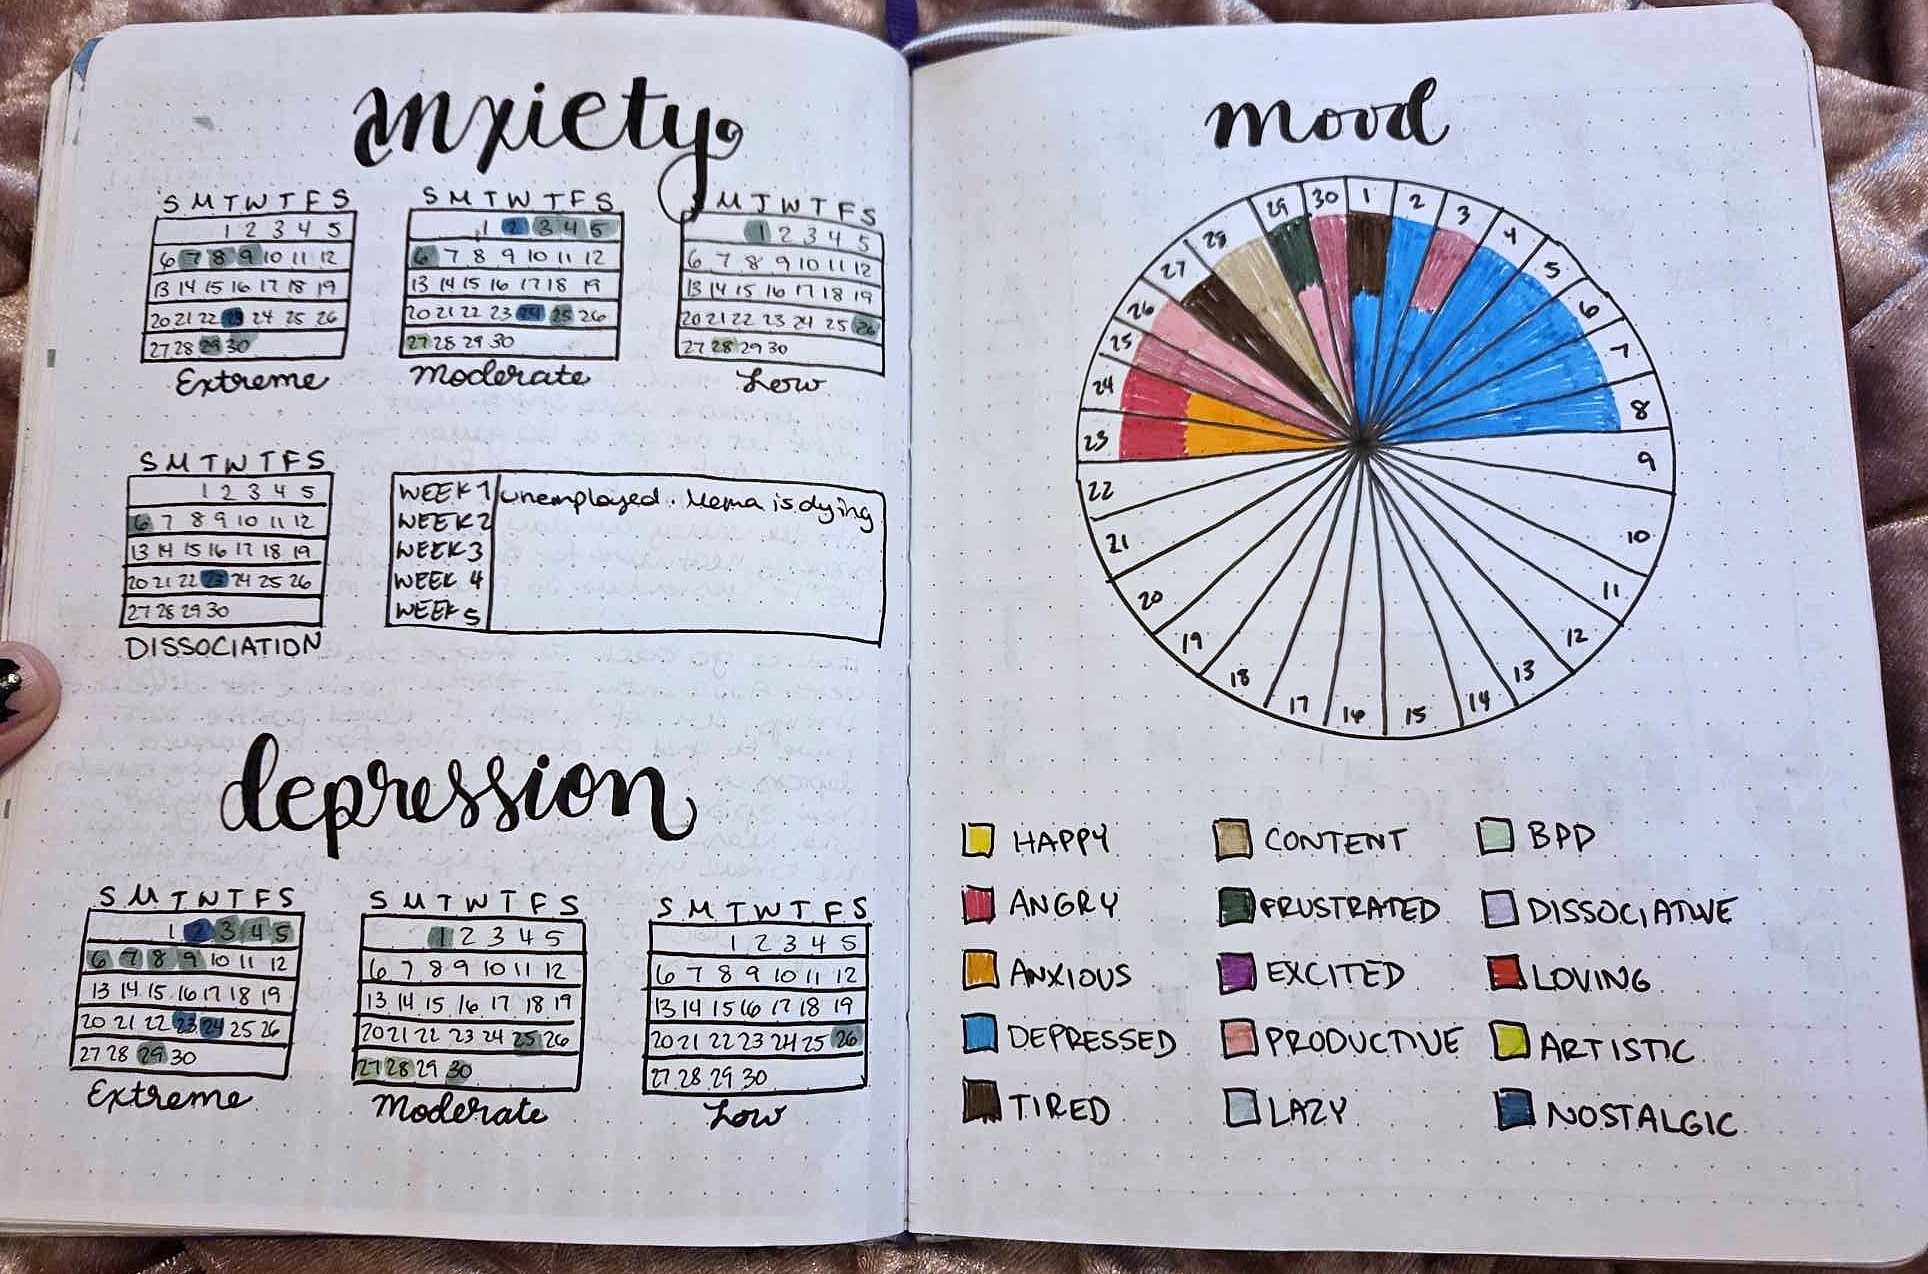 anxiety
S M T W T F S
1 2 3 4 5
6 7 8 9 10 11 12
13 14 15 16 17 18 19
20 21 22 23 24 25 26
27 28 29 30
Extreme
S M T W T F S
1 2 3 4 5
6 7 8 9 10 11 12
13 14 15 16 17 18 19
20 21 22 23 24 25 26
27 28 29 30
Moderate
M T W T F S
1 2 3 4 5
6 7 8 9 10 11 12
13 14 15 16 17 18 19
20 21 22 23 24 25 26
27 28 29 30
Low
S M T W T F S
1 2 3 4 5
6 7 8 9 10 11 12
13 14 15 16 17 18 19
20 21 22 23 24 25 26
27 28 29 30
DISSOCIATION
WEEK 1 unemployed. Mema is dying
WEEK 2
WEEK 3
WEEK 4
WEEK 5
depression
S M T W T F S
1 2 3 4 5
6 7 8 9 10 11 12
13 14 15 16 17 18 19
20 21 22 23 24 25 26
27 28 29 30
Extreme
S M T W T F S
1 2 3 4 5
6 7 8 9 10 11 12
13 14 15 16 17 18 19
20 21 22 23 24 25 26
27 28 29 30
Moderate
S M T W T F S
1 2 3 4 5
6 7 8 9 10 11 12
13 14 15 16 17 18 19
20 21 22 23 24 25 26
27 28 29 30
Low
mood
1
2
3
4
5
6
7
8
9
10
11
12
13
14
15
16
17
18
19
20
21
22
23
24
25
26
27
28
29
30
HAPPY CONTENT BPD
ANGRY FRUSTRATED DISSOCIATIVE
ANXIOUS EXCITED LOVING
DEPRESSED PRODUCTIVE ARTISTIC
TIRED LAZY NOSTALGIC